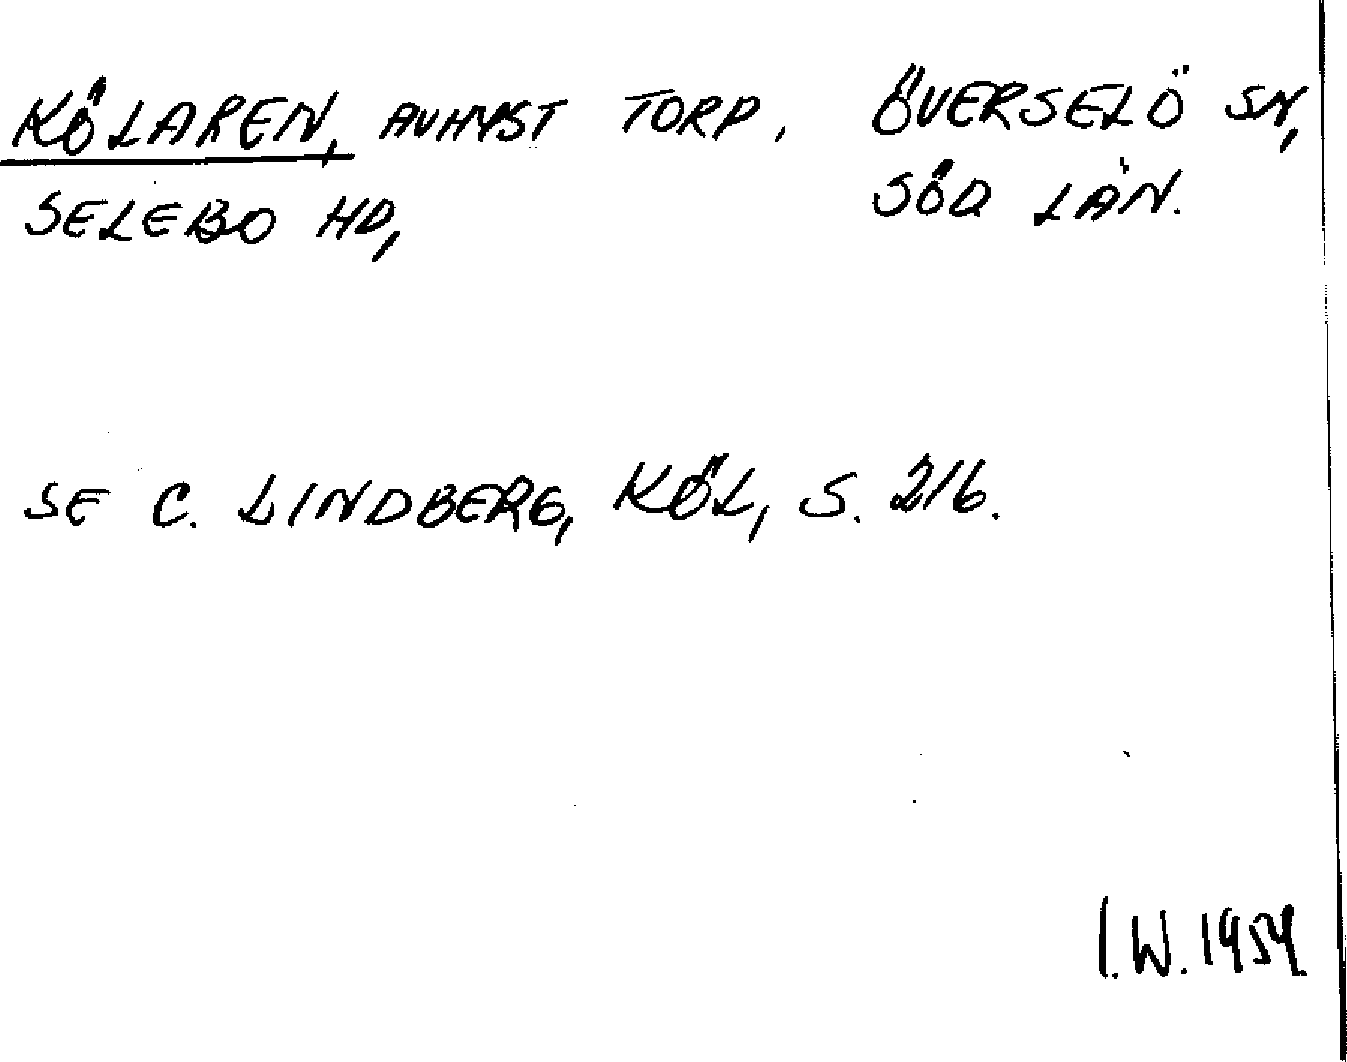 KÖLAREN, AVHYST TORP, ÖVERSELÖ SN,
SELEBO HD, SÖD LÄN.
SE C. LINDBERG, KÖL, S. 216.
I.W. 1954